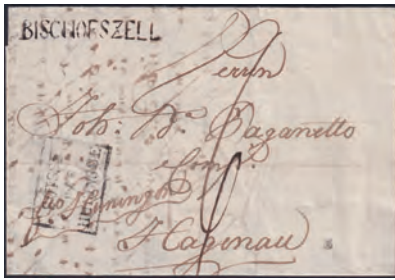 BISCHOFSZELL
Herrn
Joh: Bᵃ Paganetto
Comp.
Hagenau